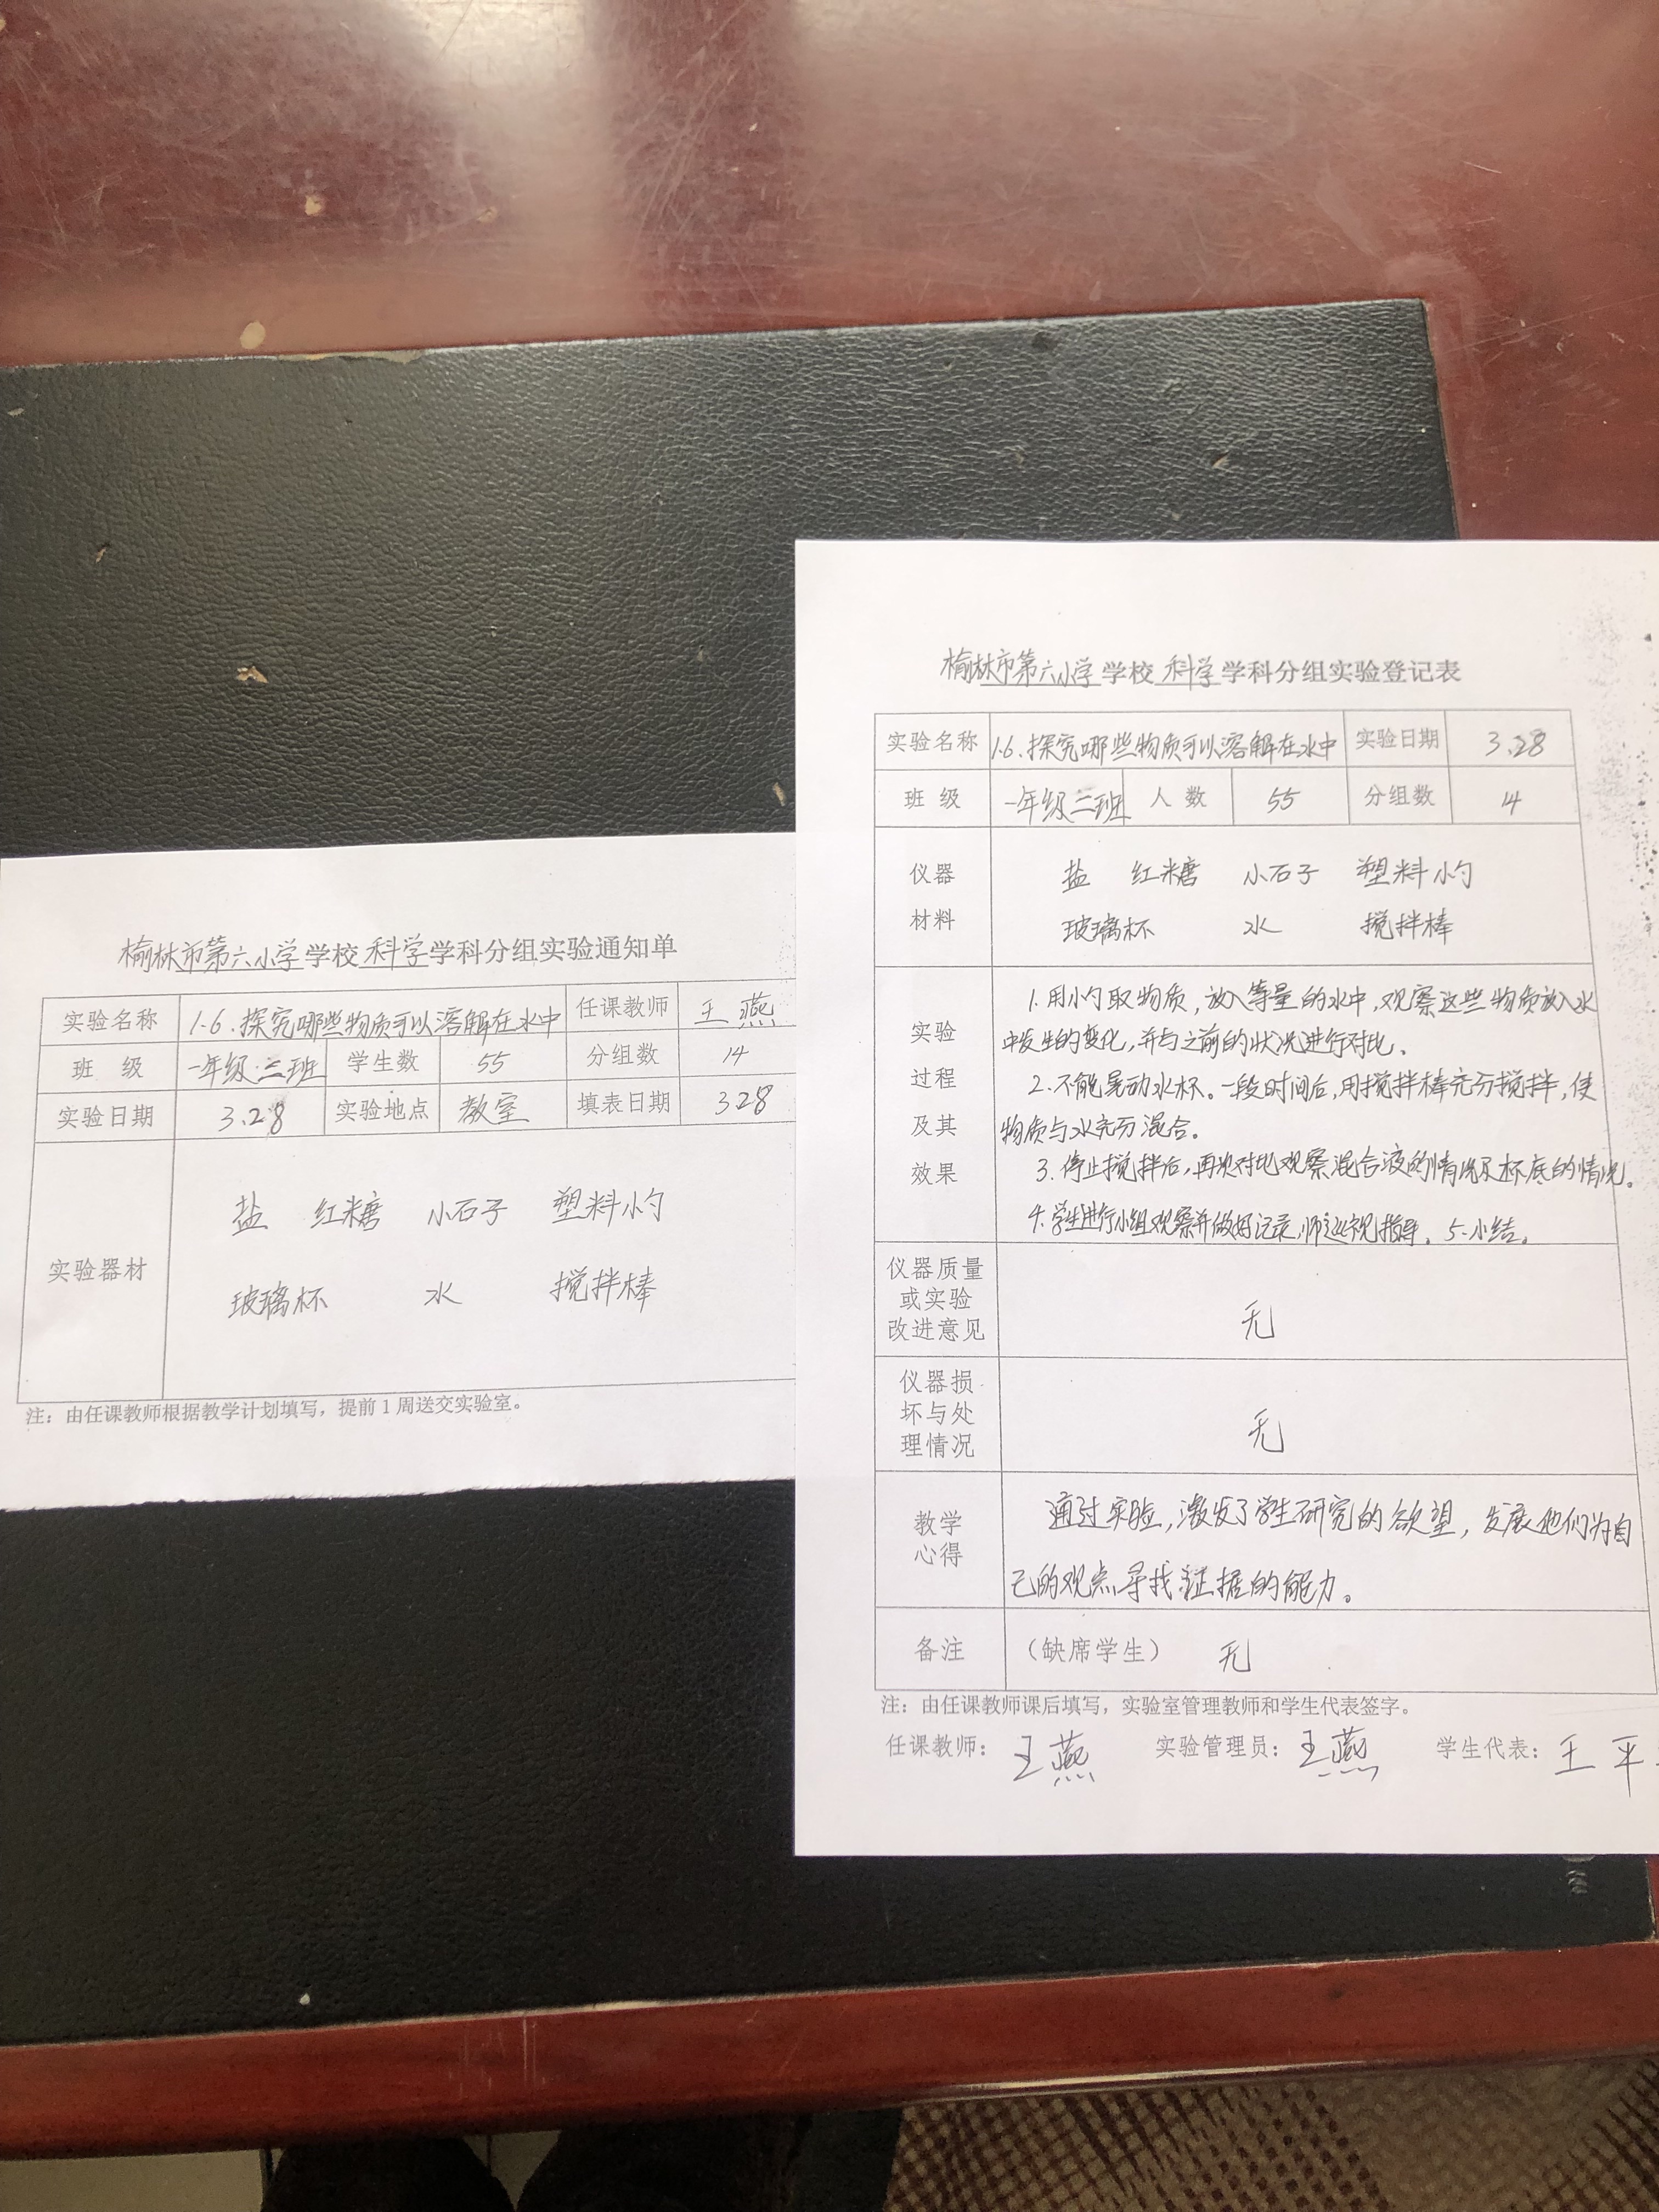 榆林市第六小学学校科学学科分组实验通知单
实验名称 1.6.探究哪些物质可以溶解在水中 任课教师 王燕
班 级 一年级三班 学生数 55 分组数 14
实验日期 3.28 实验地点 教室 填表日期 3.28
实验器材
盐 红糖 小石子 塑料小勺
玻璃杯 水 搅拌棒
注：由任课教师根据教学计划填写，提前1周送交实验室。
榆林市第六小学学校科学学科分组实验登记表
实验名称 1.6.探究哪些物质可以溶解在水中 实验日期 3.28
班 级 一年级三班 人 数 55 分组数 14
仪器
材料
盐 红糖 小石子 塑料小勺
玻璃杯 水 搅拌棒
实验
过程
及其
效果
1.用小勺取物质，放入等量的水中，观察这些物质放入水
中发生的变化，并与之前的状况进行对比、
2.不能晃动水杯。一段时间后，用搅拌棒充分搅拌，使
物质与水充分混合。
3.停止搅拌后，再次对比观察混合液的情况及杯底的情况。
4.学生进行小组观察并做好记录，师巡视指导。5.小结。
仪器质量
或实验
改进意见
无
仪器损
坏与处
理情况
无
教学
心得
通过实验，激发了学生研究的欲望，发展他们为自
己的观点寻找证据的能力。
备注 （缺席学生） 无
注：由任课教师课后填写，实验室管理教师和学生代表签字。
任课教师：王燕 实验管理员：王燕 学生代表：王平